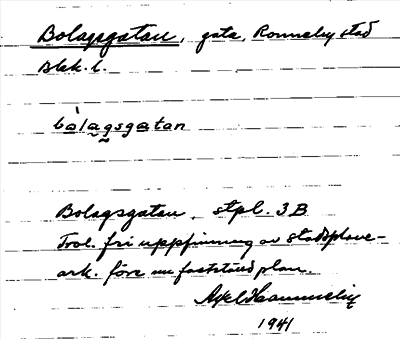 Bolagsgatan, gata, Ronneby stad
Blek. l.
bòlagsgatan
Bolagsgatan, stpl. 3 B
Trol. fri uppfinning av stadsplane-
ark. före nu fastställd plan.
Axel
1941